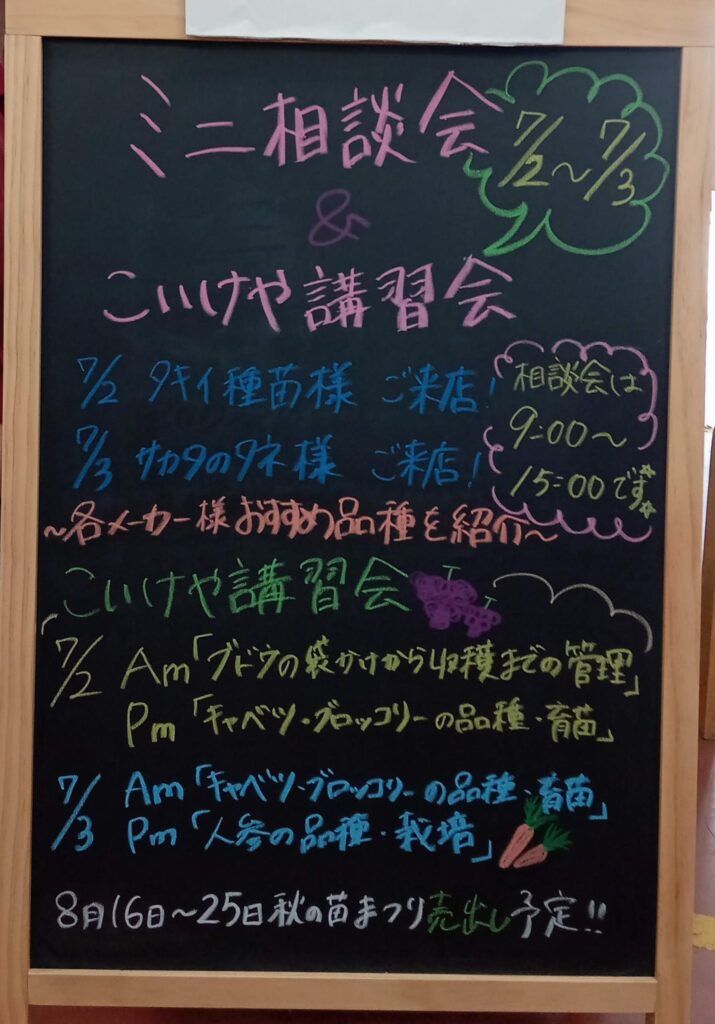 ミニ相談会
7/2～7/3
&
こいけや講習会
7/2 タキイ種苗様 ご来店!
7/3 サカタのタネ様 ご来店!
相談会は
9:00～
15:00です☆☆
～各メーカー様おすすめ品種を紹介～
こいけや講習会
7/2 Am「ブドウの袋かけから収穫までの管理」
Pm「キャベツ・ブロッコリーの品種・育苗」
7/3 Am「キャベツ・ブロッコリーの品種・育苗」
Pm「人参の品種・栽培」
8月16日～25日秋の苗まつり売出し予定!!